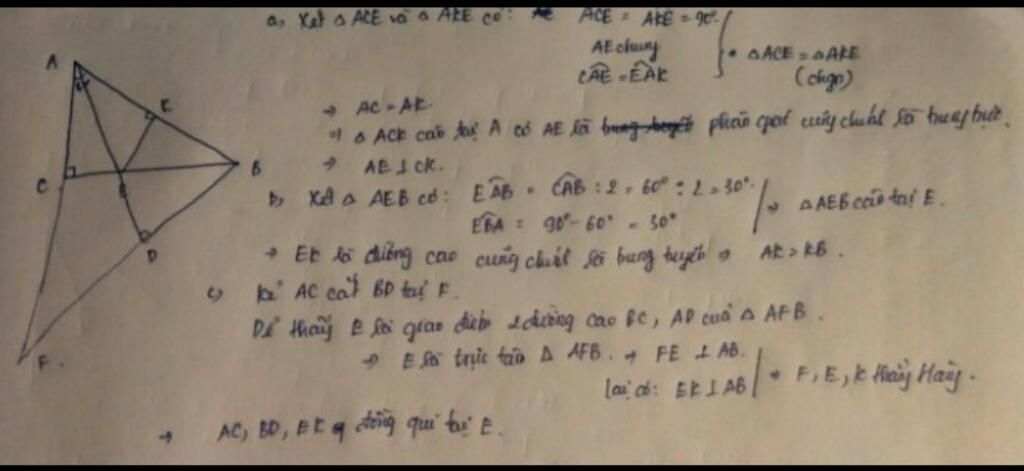 a, Xét △ ACE và △ AKE có: ACE = AKE = 90°
AE chung
CAE = EAK
⇒ △ACE = △AKE
(chgn)
⇒ AC = AK.
⇒ △ ACK cân tại A có AE là phân giác cũng chính là trung trực.
⇒ AE ⊥ CK.
b, Xét △ AEB có: EAB = CAB : 2 = 60° : 2 = 30°
EBA = 90° - 60° = 30°
⇒ △AEB cân tại E.
⇒ EK là đường cao cũng chính là trung tuyến ⇒ AK = KB.
c, Kẻ AC cắt BD tại F.
Dễ thấy E là giao điểm 2 đường cao BC, AD của △ AFB.
⇒ E là trực tâm △ AFB. ⇒ FE ⊥ AB.
Lại có: EK ⊥ AB
⇒ F, E, K thẳng hàng.
⇒ AC, BD, EK đồng qui tại E.
A
K
C
E
B
D
F.